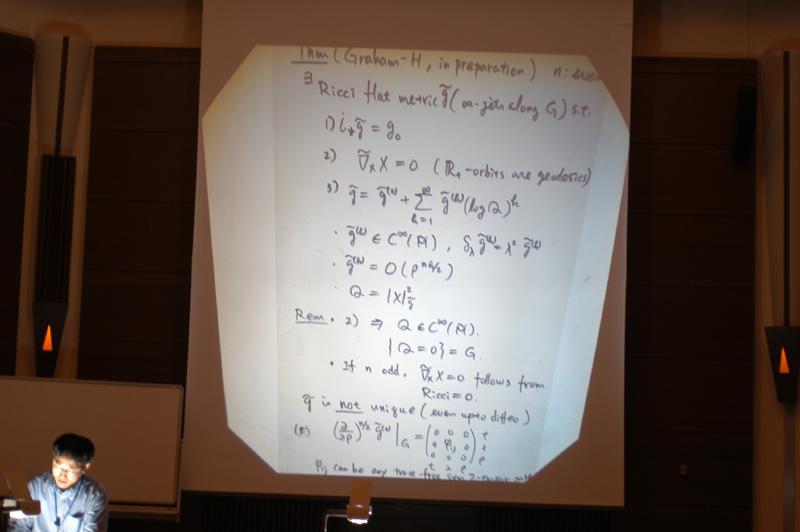 Thm (Graham-H, in preparation) n: even
∃ Ricci flat metric g̃ (∞-jets along G) s.t.
1) i*g̃ = g₀
2) ∇̃_X X = 0 (ℝ₊-orbits are geodesics)
3) g̃ = g̃⁽⁰⁾ + ∑_{k=1}^{∞} g̃⁽ᵏ⁾(log Q)ᵏ
· g̃⁽ᵏ⁾ ∈ C^∞(), δ_λ g̃⁽ᵏ⁾ = λ² g̃⁽ᵏ⁾
· g̃⁽ᵏ⁾ = O(ρ^{nk/2})
· Q = |X|²_g̃
Rem · 2) ⇒ Q ∈ C^∞().
{Q = 0} = G.
· If n odd, ∇̃_X X = 0 follows from
Ricci = 0.
g̃ is not unique (even up to diffeo)
(∂/∂ρ)^{n/2} g̃⁽⁰⁾ |_G = (0 0 0; 0 φ_ij 0; 0 0 0)
t x ρ
φ_ij can be any trace-free sym 2-tensor